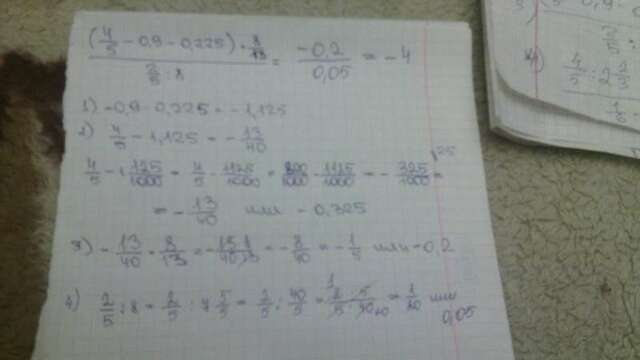 (4/5 - 0,9 - 0,225) · 8/13
2/5 : 8
= -0,2/0,05 = -4
1) -0,9 - 0,225 = -1,125
2) 4/5 - 1,125 = -13/40
4/5 - 1 125/1000 = 4/5 - 1125/1000 = 800/1000 - 1125/1000 = -325/1000 =
= -13/40 или -0,325
3) -13/40 · 8/13 = = -8/40 = -1/5 или -0,2
4) 2/5 : 8 = 2/5 : 7 5/5 = 2/5 : 40/5 = = 1/20 или
0,05